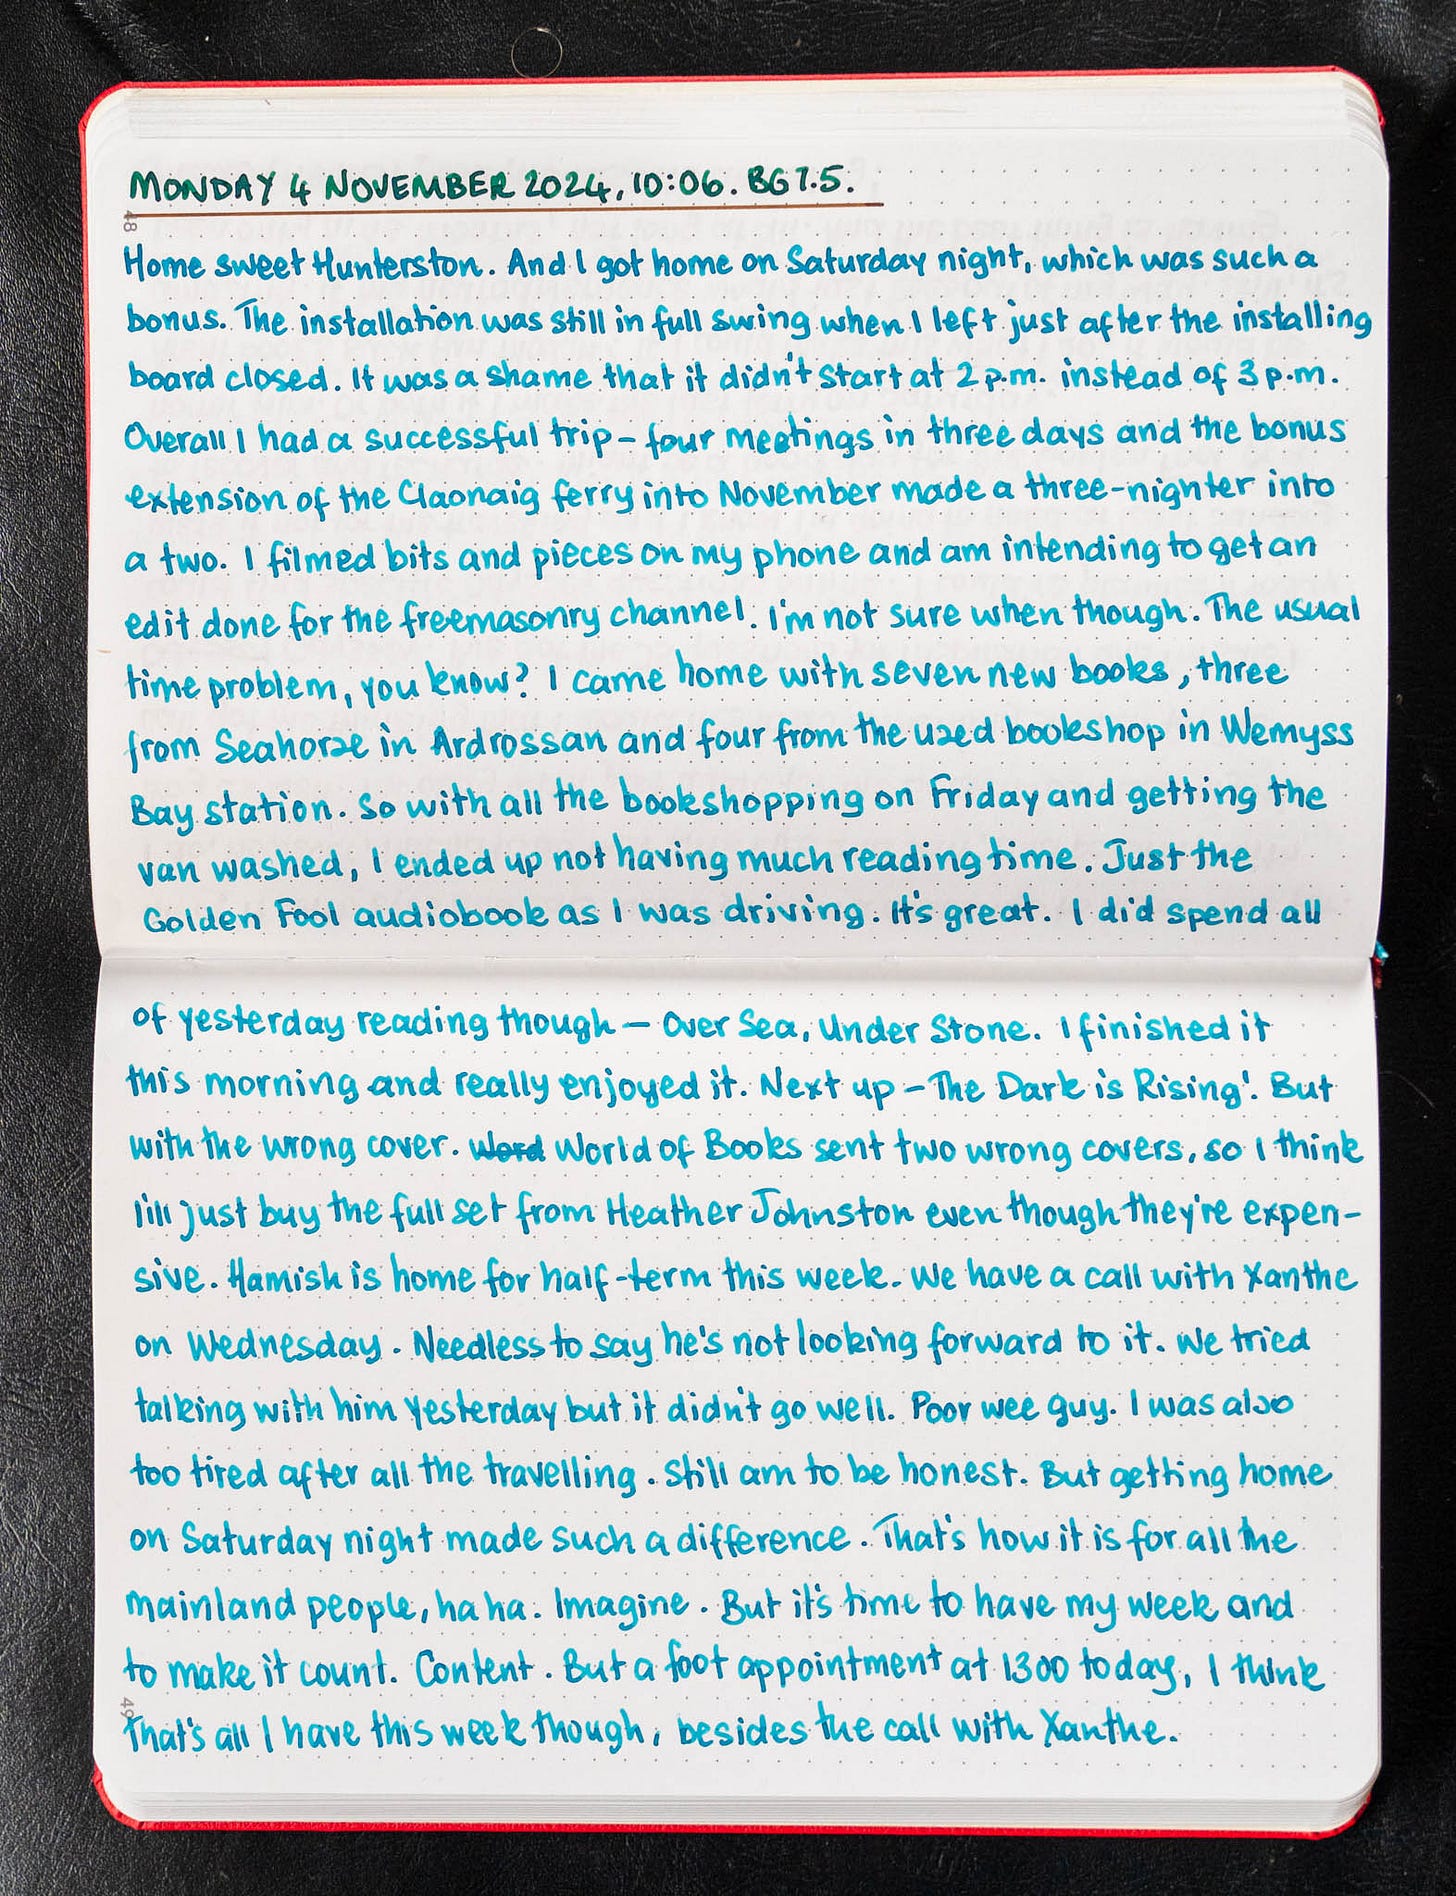 MONDAY 4 NOVEMBER 2024, 10:06. BG 7.5.
48
Home sweet Hunterston. And I got home on Saturday night, which was such a
bonus. The installation was still in full swing when I left just after the installing
board closed. It was a shame that it didn't start at 2 p.m. instead of 3 p.m.
Overall I had a successful trip – four meetings in three days and the bonus
extension of the Claonaig ferry into November made a three-nighter into
a two. I filmed bits and pieces on my phone and am intending to get an
edit done for the freemasonry channel. I'm not sure when though. The usual
time problem, you know? I came home with seven new books, three
from Seahorse in Ardrossan and four from the used bookshop in Wemyss
Bay station. So with all the bookshopping on Friday and getting the
van washed, I ended up not having much reading time. Just the
Golden Fool audiobook as I was driving. It's great. I did spend all
of yesterday reading though – Over Sea, Under Stone. I finished it
this morning and really enjoyed it. Next up – The Dark is Rising'. But
with the wrong cover. Word World of Books sent two wrong covers, so I think
I'll just buy the full set from Heather Johnston even though they're expen-
sive. Hamish is home for half-term this week. We have a call with Xanthe
on Wednesday. Needless to say he's not looking forward to it. We tried
talking with him yesterday but it didn't go well. Poor wee guy. I was also
too tired after all the travelling. Still am to be honest. But getting home
on Saturday night made such a difference. That's how it is for all the
mainland people, ha ha. Imagine. But it's time to have my week and
to make it count. Content. But a foot appointment at 1300 today, I think
49
that's all I have this week though, besides the call with Xanthe.